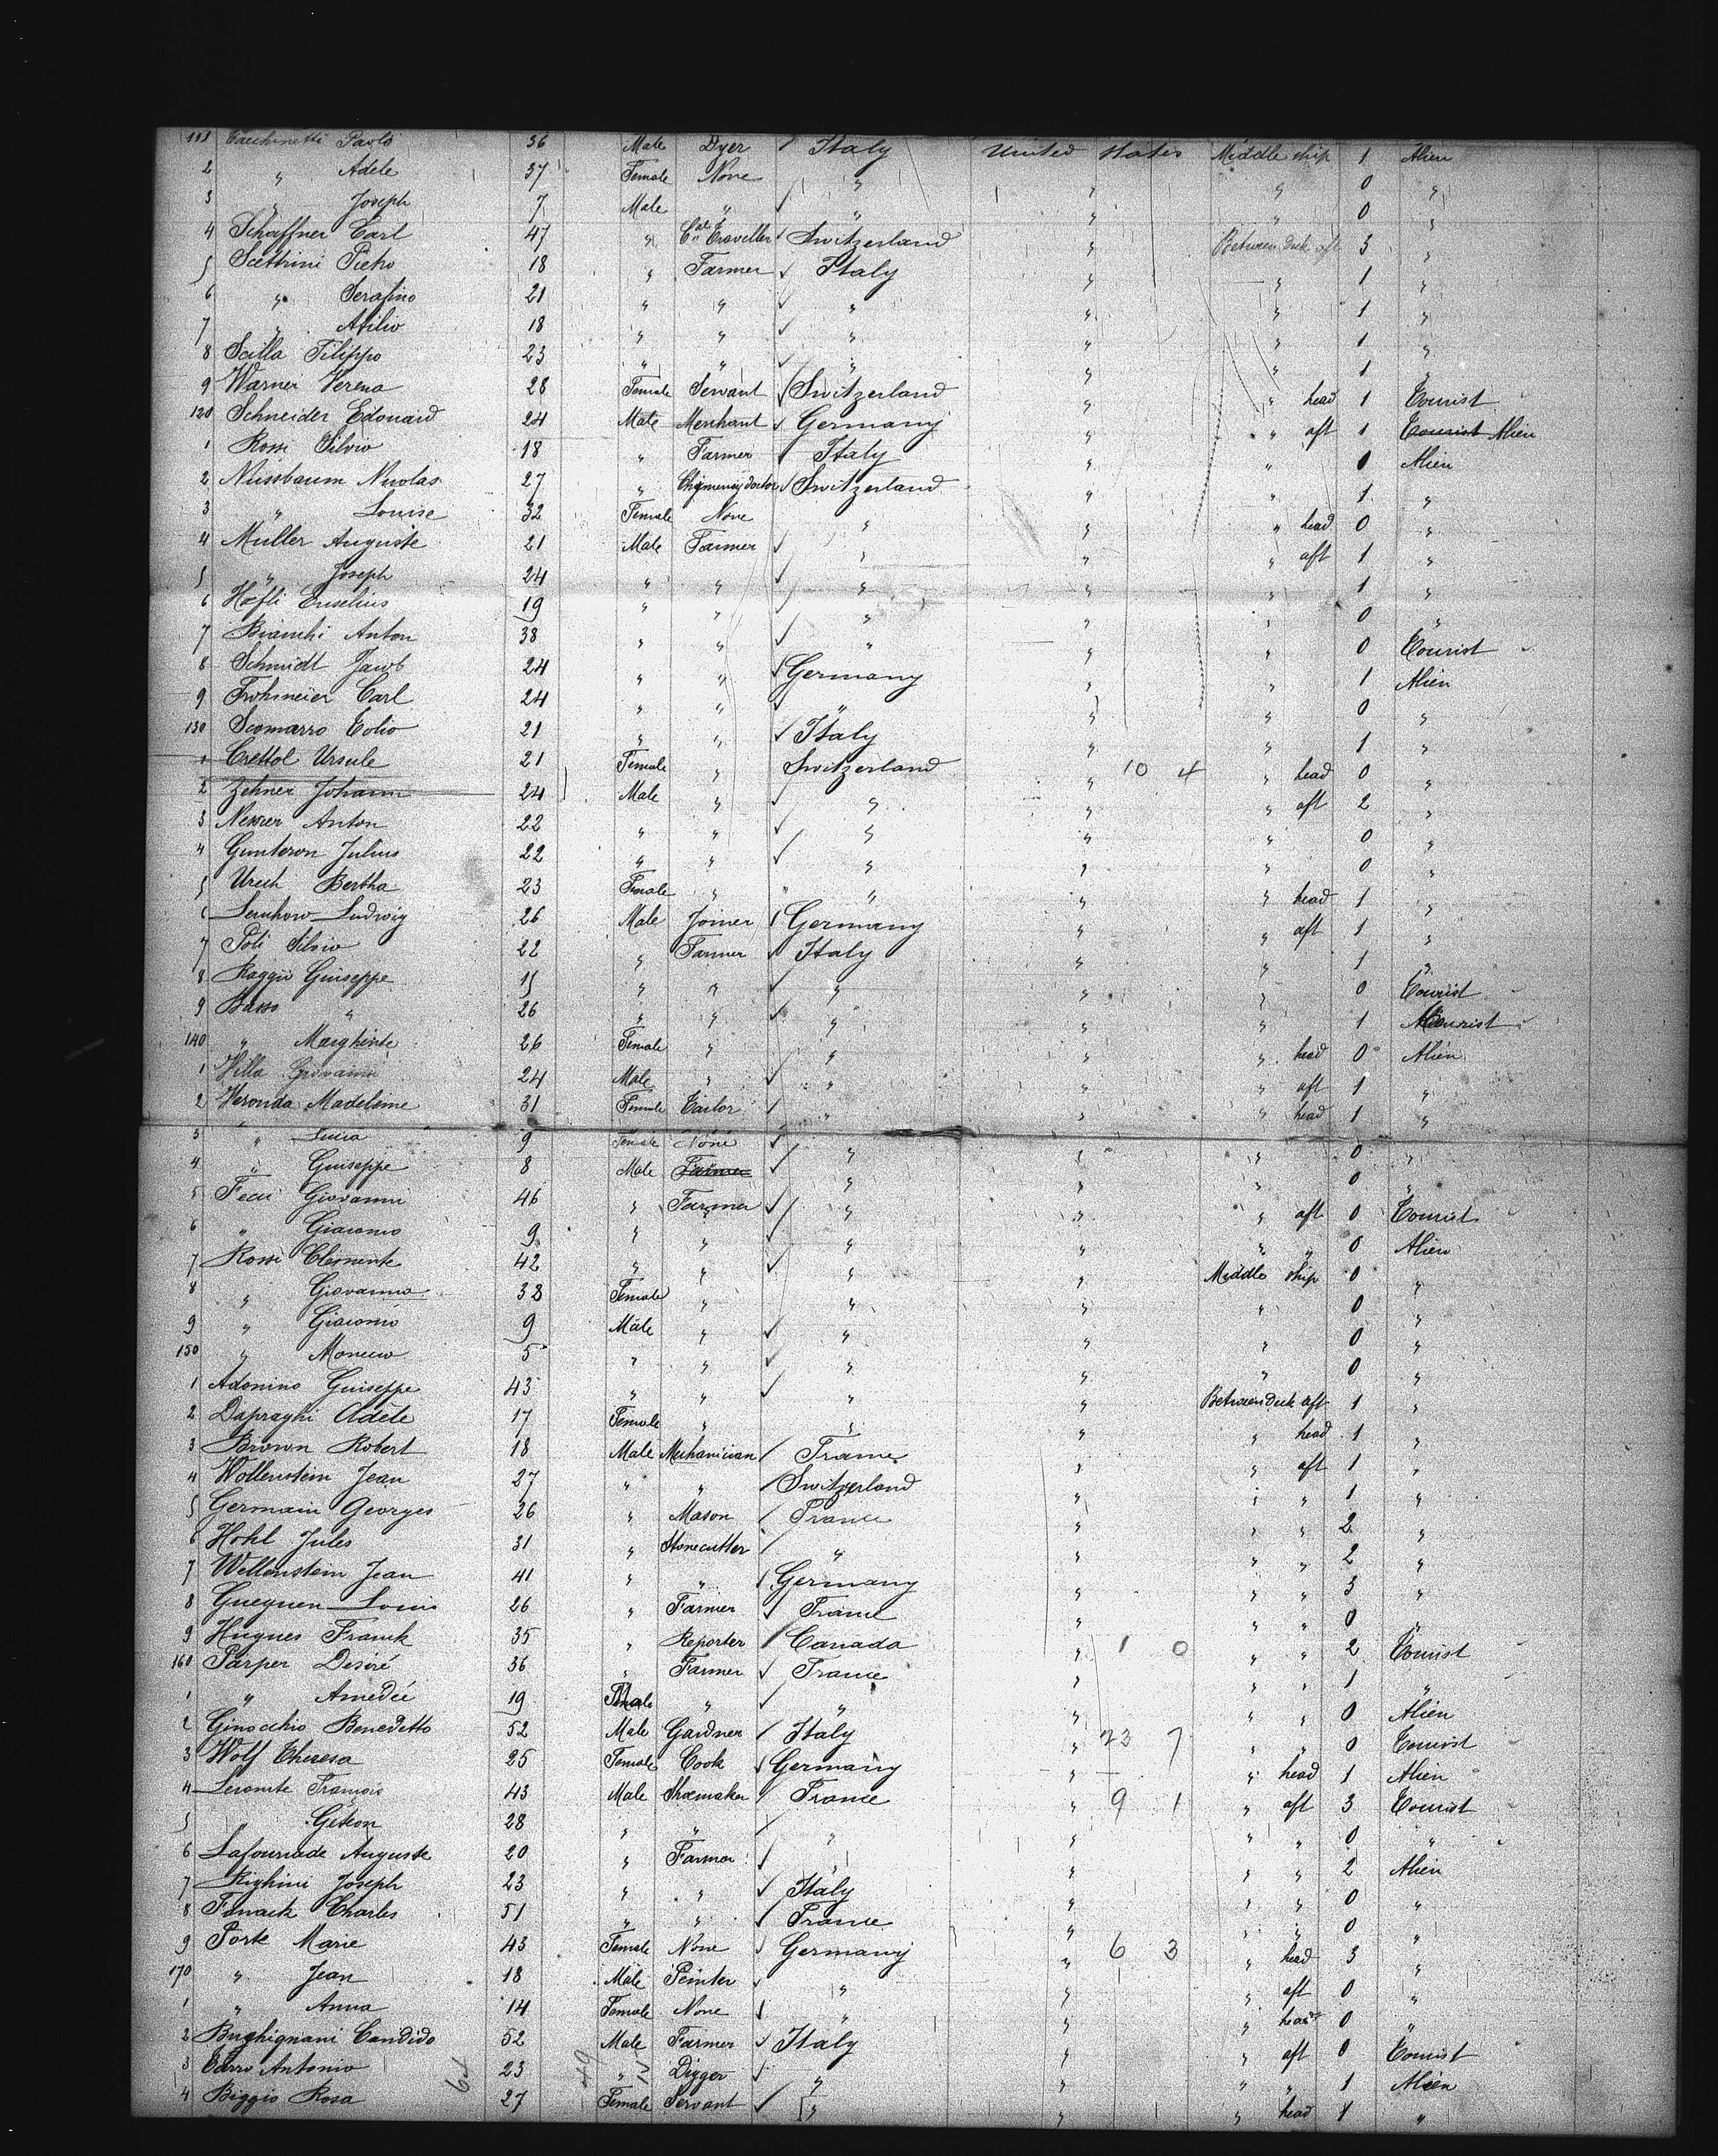 111 Cacchinetti Paolo 36 Male Dyer Italy United States Middle ship 1 Alien
2 " Adele 37 Female None " " " 0 "
3 " Joseph 7 Male " " " " 0 "
4 Schaffner Carl 47 " Traveller Switzerland " Between deck aft 3 "
5 Scettrini Pietro 18 " Farmer Italy " " 1 "
6 " Serafino 21 " " " " " 1 "
7 " Atilio 18 " " " " " 1 "
8 Scilla Filippo 23 " " " " " 1 "
9 Warner Verena 28 Female Servant Switzerland " " head 1 Tourist
120 Schneider Edouard 24 Male Merchant Germany " " aft 1 Tourist Alien
1 Rossi Silvio 18 " Farmer Italy " " 0 Alien
2 Nussbaum Nicolas 27 " Switzerland " " 1 "
3 " Louise 32 Female None " " " head 0 "
4 Müller Auguste 21 Male Farmer " " " aft 1 "
5 " Joseph 24 " " " " " 1 "
6 Hæfli Euselius 19 " " " " " 0 "
7 Bianchi Anton 38 " " " " " 0 Tourist
8 Schmidt Jacob 24 " " Germany " " 1 Alien
9 Frohmeier Carl 24 " " " " " 0 "
130 Scomarro Eolio 21 " " Italy " " 1 "
1 Crettol Ursule 21 Female " Switzerland " 10 4 " head 0 "
2 Zehner Johann 24 Male " " " " aft 2 "
3 Nesser Anton 22 " " " " " 0 "
4 Gunteron Julius 22 " " " " " 0 "
5 Urech Bertha 23 Female " " " " head 1 "
6 Lenchow Ludwig 26 Male Joiner Germany " " aft 1 "
7 Poli Silvio 22 " Farmer Italy " " 1 "
8 Raggio Guiseppe 15 " " " " " 0 Tourist
9 Basso " 26 " " " " " 1 Tourist
140 " Marghirite 26 Female " " " " head 0 Alien
1 Villa Giovanni 24 Male " " " " aft 1 "
2 Veronda Madeleine 31 Female Tailor " " " head 1 "
3 " Lucia 9 Female None " " " 0 "
4 " Guiseppe 8 Male Farmer " " " 0 "
5 Fecci Giovanni 46 " Farmer " " " aft 0 Tourist
6 " Giacomo 9 " " " " " " 0 Alien
7 Rossi Clemente 42 " " " " Middle ship 0 "
8 " Giovanna 38 Female " " " " 0 "
9 " Giacomo 9 Male " " " " 0 "
150 " 5 " " " " " 0 "
1 Adonino Guiseppe 43 " " " " Between deck aft 1 "
2 Dapraghi Adèle 17 Female " " " " head 1 "
3 Brown Robert 18 Male Mechanician France " " aft 1 "
4 Wollenstein Jean 27 " " Switzerland " " " 1 "
5 Germain Georges 26 " Mason France " " " 2 "
6 Hohl Jules 31 " Stonecutter " " " " 2 "
7 Wellenstein Jean 41 " " Germany " " " 3 "
8 Gueguen Louis 26 " Farmer France " " " 0 "
9 Hugues Franck 35 " Reporter Canada " 1 0 " " 2 Tourist
160 Parper Desiré 36 " Farmer France " " " 1 "
1 " Amedée 19 Male " " " " " 0 Alien
2 Ginocchio Benedetto 52 Male Gardner Italy " 23 7 " " 0 Tourist
3 Wolf Theresa 25 Female Cook Germany " " head 1 Alien
4 Lecomte François 43 Male Shoemaker France " 9 1 " aft 3 Tourist
5 Gédéon 28 " " " " " " 0 "
6 Lafourcade Auguste 20 " Farmer " " " " 2 Alien
7 Righini Joseph 23 " " Italy " " " 0 "
8 Charles 51 " " France " " " 0 "
9 Porte Marie 43 Female None Germany " 6 3 " head 3 "
170 " Jean 18 Male Peinter " " " aft 0 "
1 " Anna 14 Female None " " " head 0 "
2 Bughignani Candido 52 Male Farmer Italy " " aft 0 Tourist
3 Carro Antonio 23 " Digger " " " " 1 Alien
4 Biggio Rosa 27 Female Servant " " " head 1 "